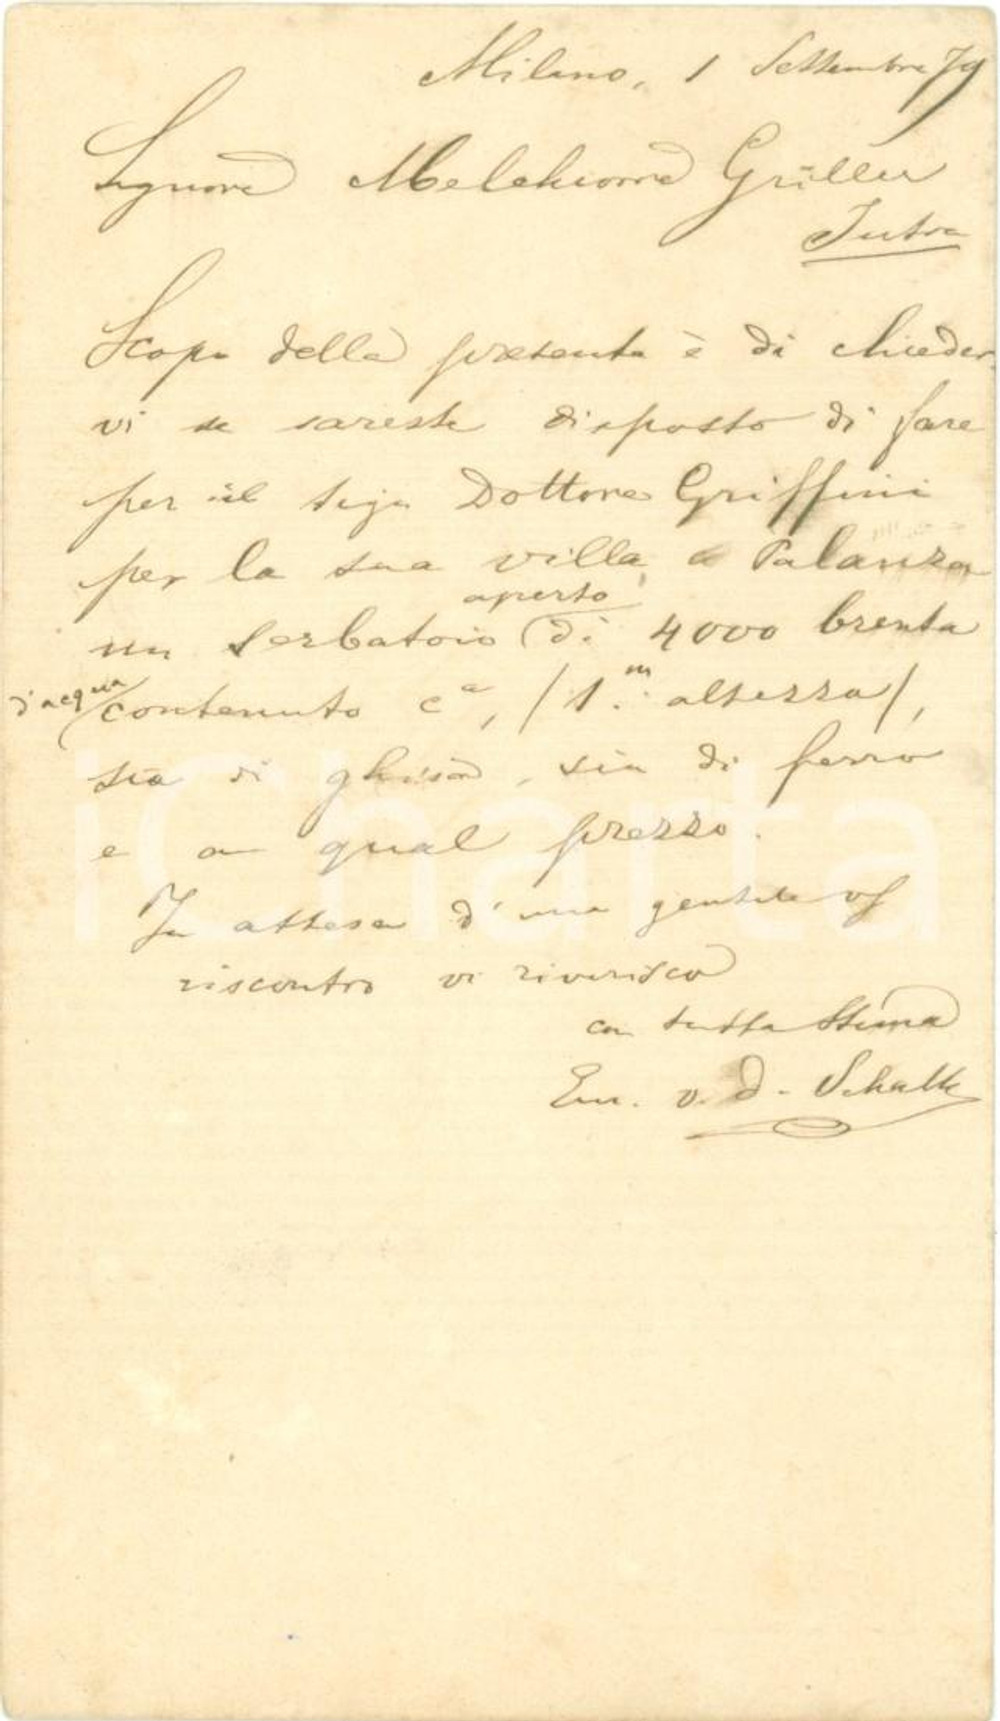 Milano, 1 Settembre 79
Signore Melchiorre Grüller
Intra
Scopo della presente è di chieder
vi se sareste disposto di fare
per il sigr Dottore Griffini
per la sua villa a Palanza
aperto
un serbatoio di 4000 brenta
d'acqua contenuto ca, /1.m altezza/,
sia di ghisa, sia di ferro
e a qual prezzo.
In attesa d'una gentile
riscontro vi riverisco
con tutta stima
Em. v. d. Schalk
iCharta